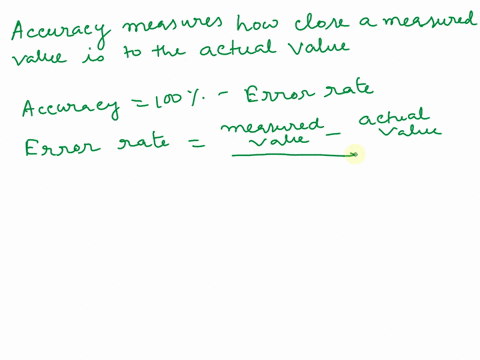 Accuracy measures how close a measured
value is to the actual value
Accuracy = 100% - Error rate
Error rate = measured value - actual value